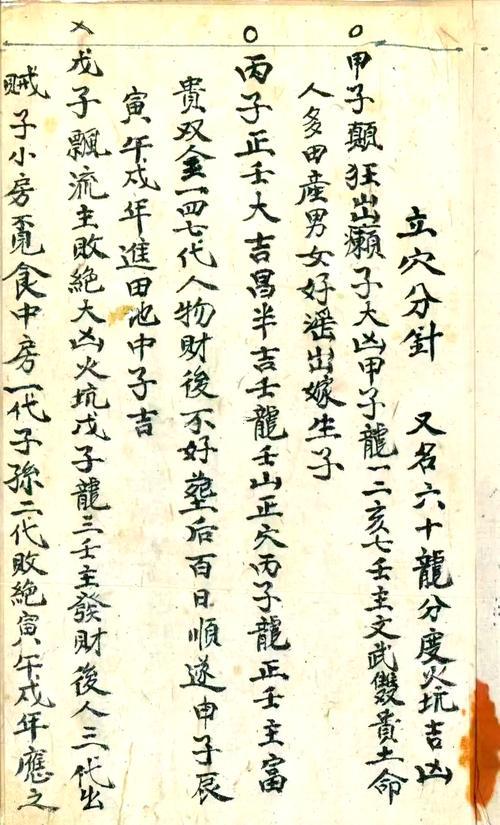 立穴分針　又名六十龍分度火坑吉凶
○甲子顛狂出癩子大凶甲子龍一二亥七壬主文武雙貴土命
人多田產男女好滛出嫁生子
○丙子正壬大吉昌半吉壬龍壬山正穴丙子龍正壬主富
貴双全一四七代人物財後不好塟后百日順遂申子辰
寅午戌年進田池中子吉
×戊子飄流主敗絕大凶火坑戊子龍三壬主發財後人三代出
賊子小房覓食中房一代子孫二代敗絕寅午戌年應之